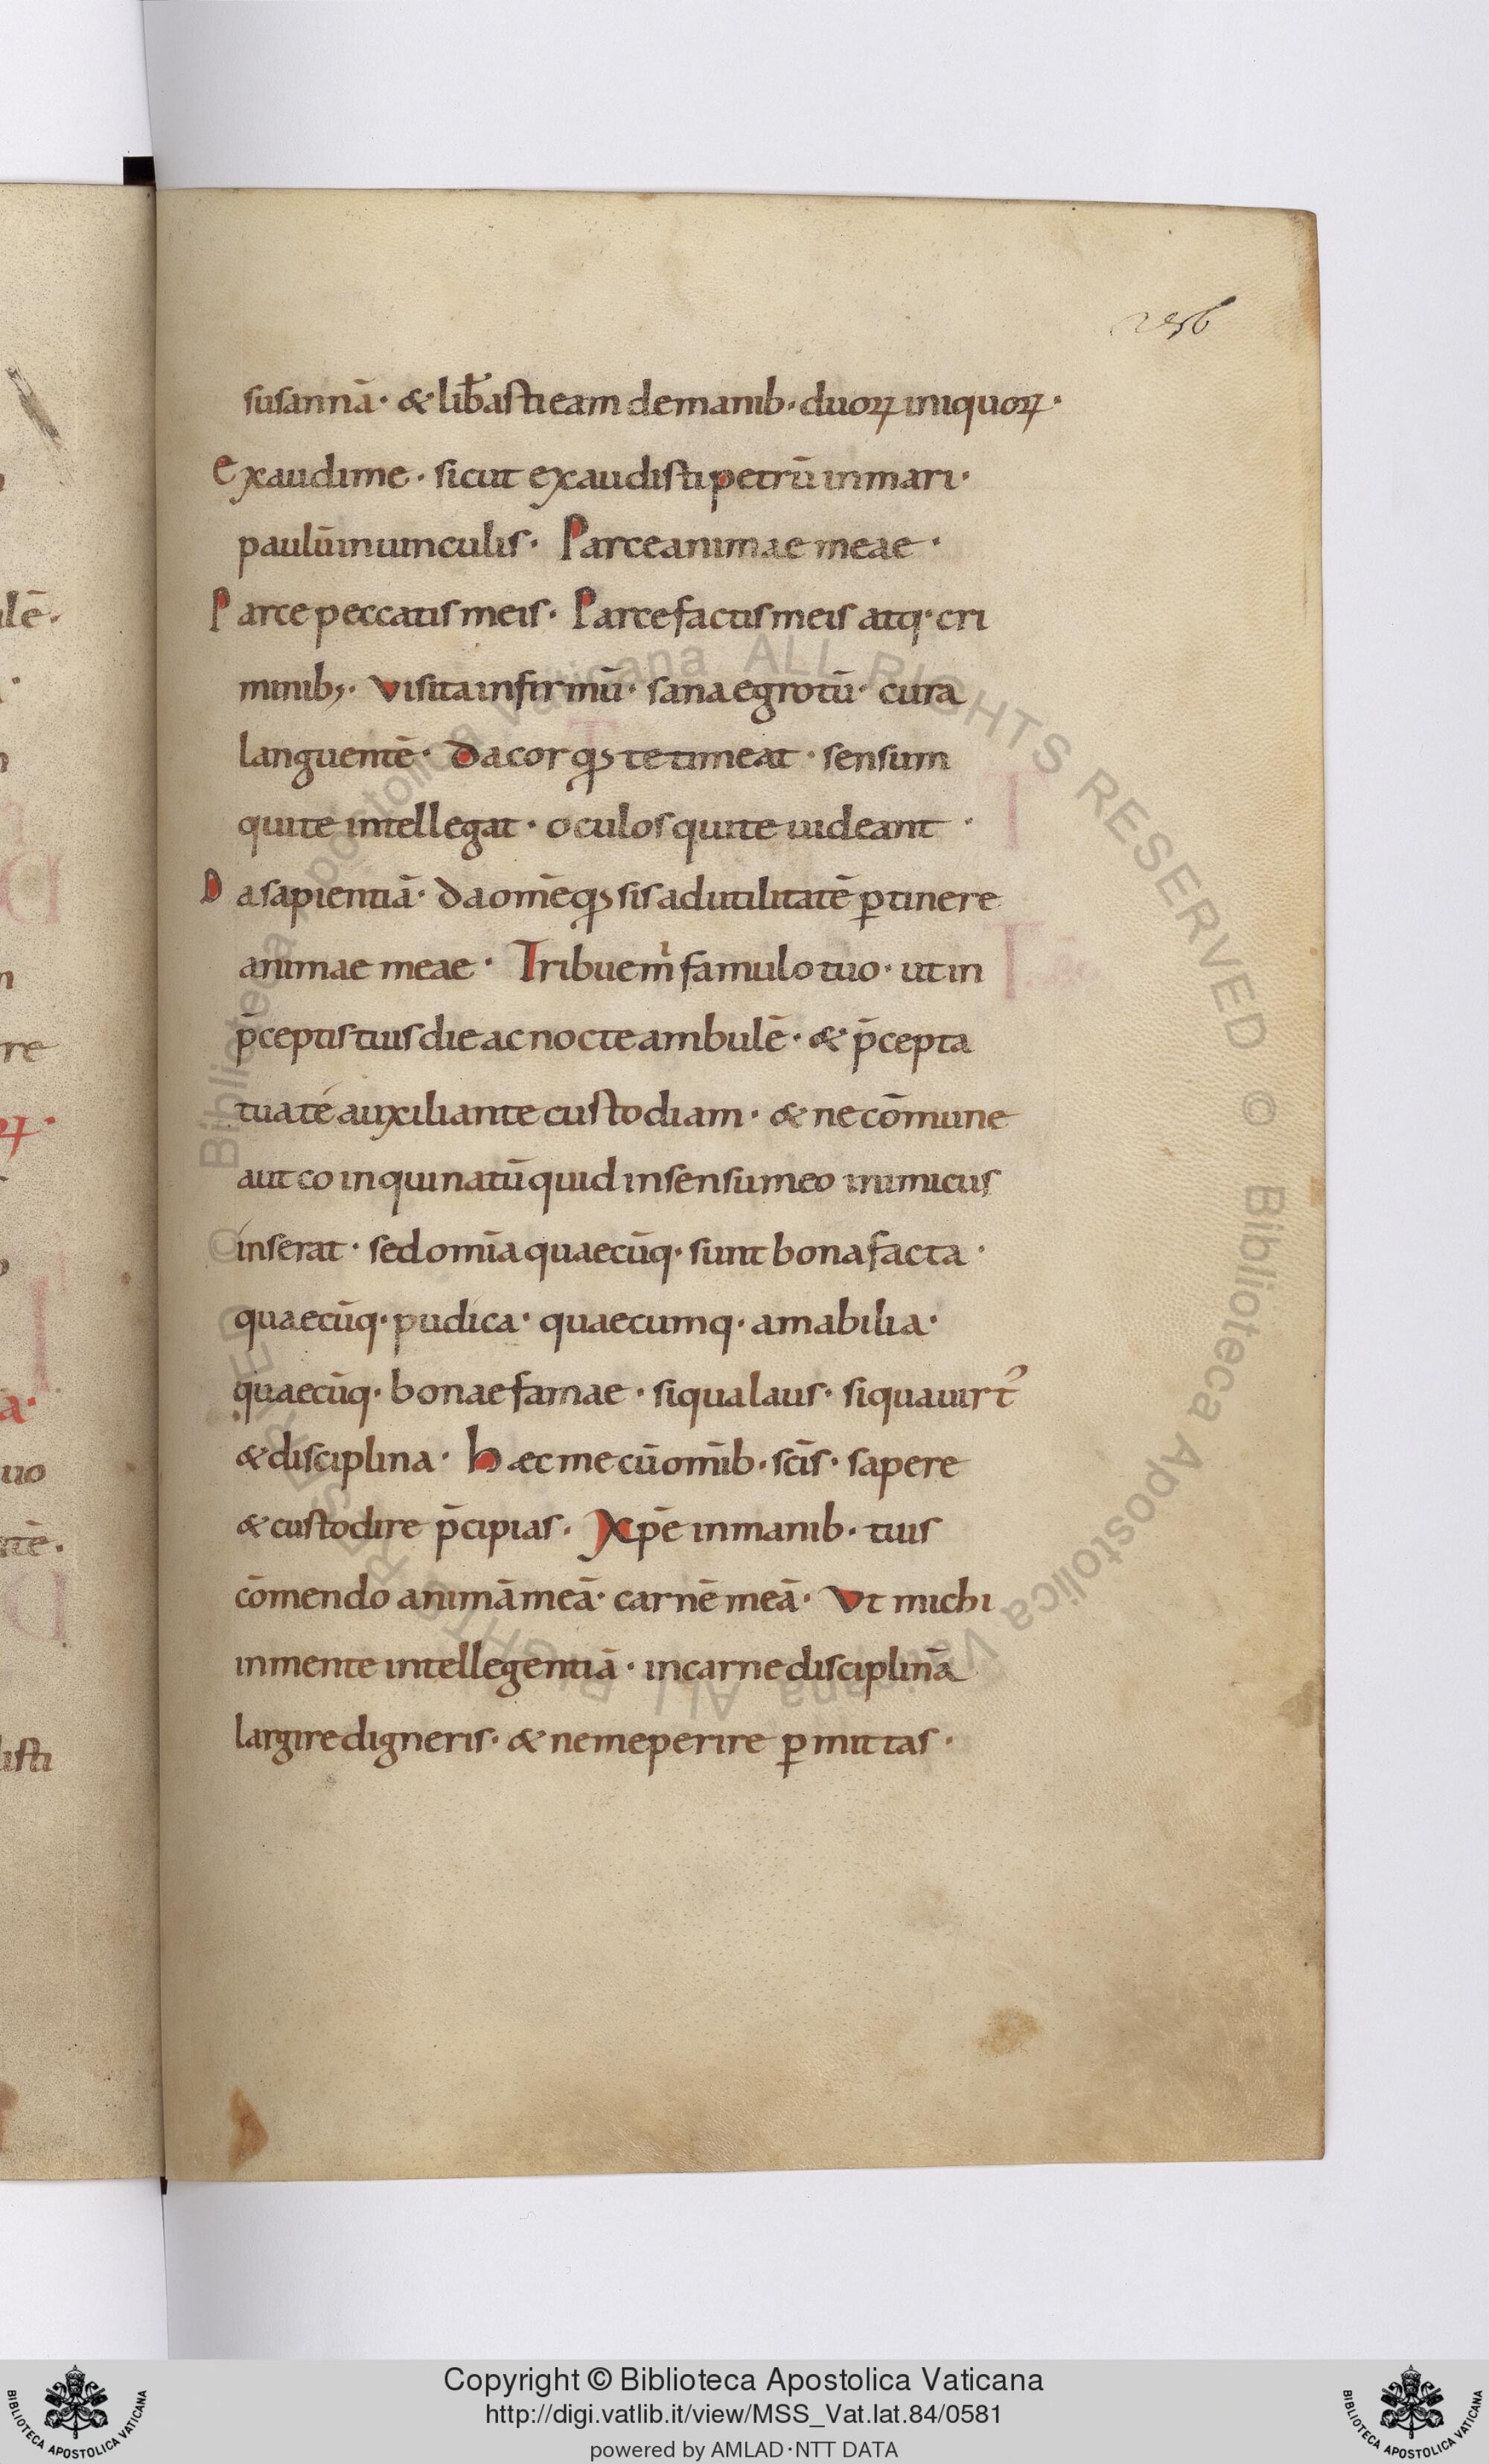 256
susannā· & lib̄asti eam de manib· duoꝝ iniquoꝝ·
Exaudi me· sicut exaudisti petrū in mari·
paulū in uinculis· Parce animae meae·
Parce peccatis meis· Parce factis meis atq· cri
minib;· Visita infirmū· sana egrotū· cura
languentē· Da cor qđ te timeat· sensum
qui te intellegat· oculos qui te uideant·
Da sapientiā· da om̄e qđ sis ad utilitatē ꝑtinere
animae meae· Tribue m̄ famulo tuo· ut in
p̄ceptis tuis die ac nocte ambulē· & p̄cepta
tua té auxiliante custodiam· & ne com̄une
aut coinquinatū quid in sensu meo inimicus
inserat· sed omīa quaecūq· sunt bona facta·
quaecūq· pudica· quaecumq· amabilia·
quaecūq· bonae famae· si qua laus· si qua uirt᾽
& disciplina· Haec me cū omīb· scīs· sapere
& custodire p̄cipias· Xp̄e in manib· tuis
cōmendo animā meā· carnē meā· Vt michi
in mente intellegentiā· in carne disciplinā
largire digneris· & ne me perire ꝑmittas·
Copyright © Biblioteca Apostolica Vaticana
http://digi.vatlib.it/view/MSS_Vat.lat.84/0581
powered by AMLAD·NTT DATA
© Biblioteca Apostolica Vaticana ALL RIGHTS RESERVED © Biblioteca Apostolica Vaticana ALL RIGHTS RESERVED
BIBLIOTECA APOSTOLICA VATICANA
BIBLIOTECA APOSTOLICA VATICANA